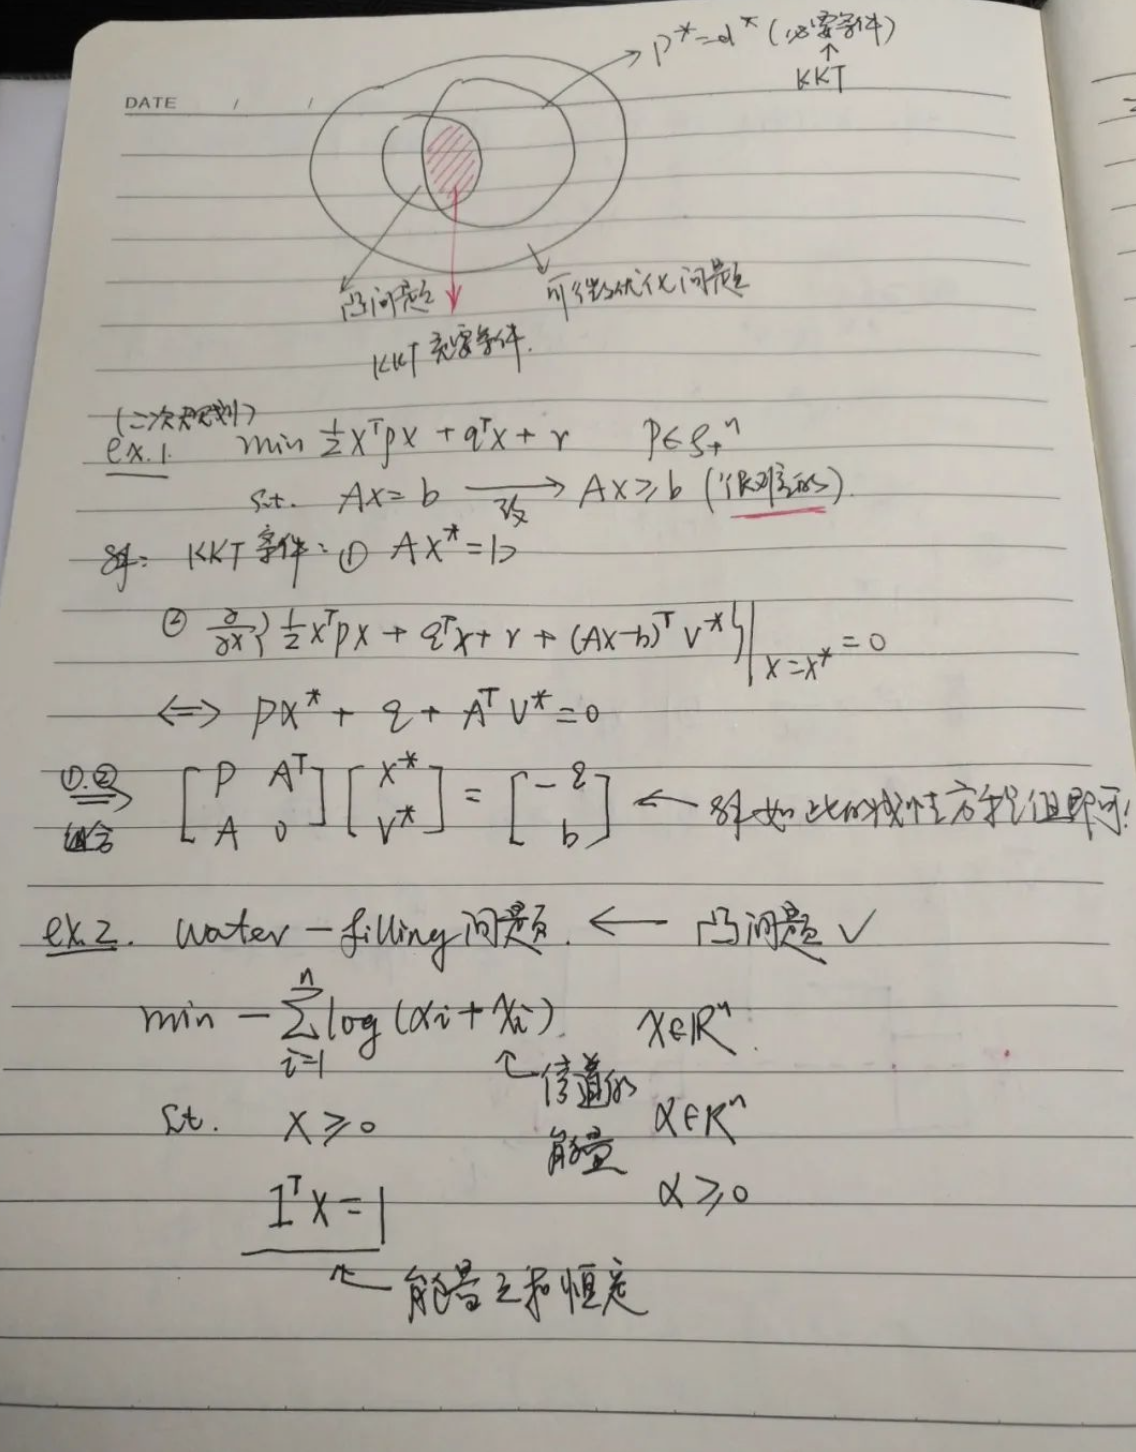 P*=d* (必要条件)
↑
KKT
DATE / /
凸问题
可微优化问题
KKT 充要条件.
(二次规划)
ex.1. min ½xᵀPx + qᵀx + r P∈S₊ⁿ
s.t. Ax=b →改 Ax≥b (很难的).
解: KKT条件: ① Ax*=b
② ∂/∂x{½xᵀPx + qᵀx + r + (Ax-b)ᵀv*}|x=x* =0
⟺ Px* + q + Aᵀv*=0
①.② ⟹ 组合 [P Aᵀ; A 0] [x*; v*] = [-q; b] ← 解如此的线性方程组即可!
ex.2. water-filling问题. ← 凸问题 ✓
min -∑ⁿᵢ₌₁ log(αi+xi). x∈Rⁿ.
↑ 信道的
能量
α∈Rⁿ
s.t. x≥0
α≥0
1ᵀx=1
↑ 能量之和恒定